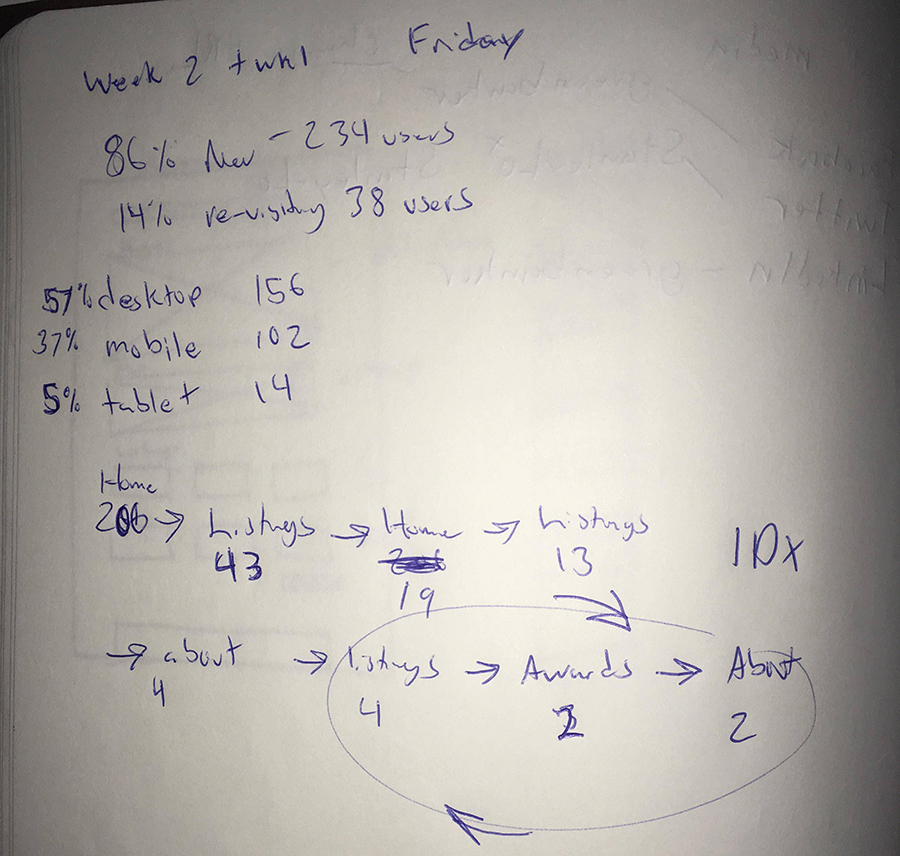 Week 2 + wk1 Friday
86% New - 234 users
14% re-visiting 38 users
57% desktop 156
37% mobile 102
5% tablet 14
Home
206 → Listings → Home → Listings
43 19 13
IDX
→ about → listings → Awards → About
4 4 2 2